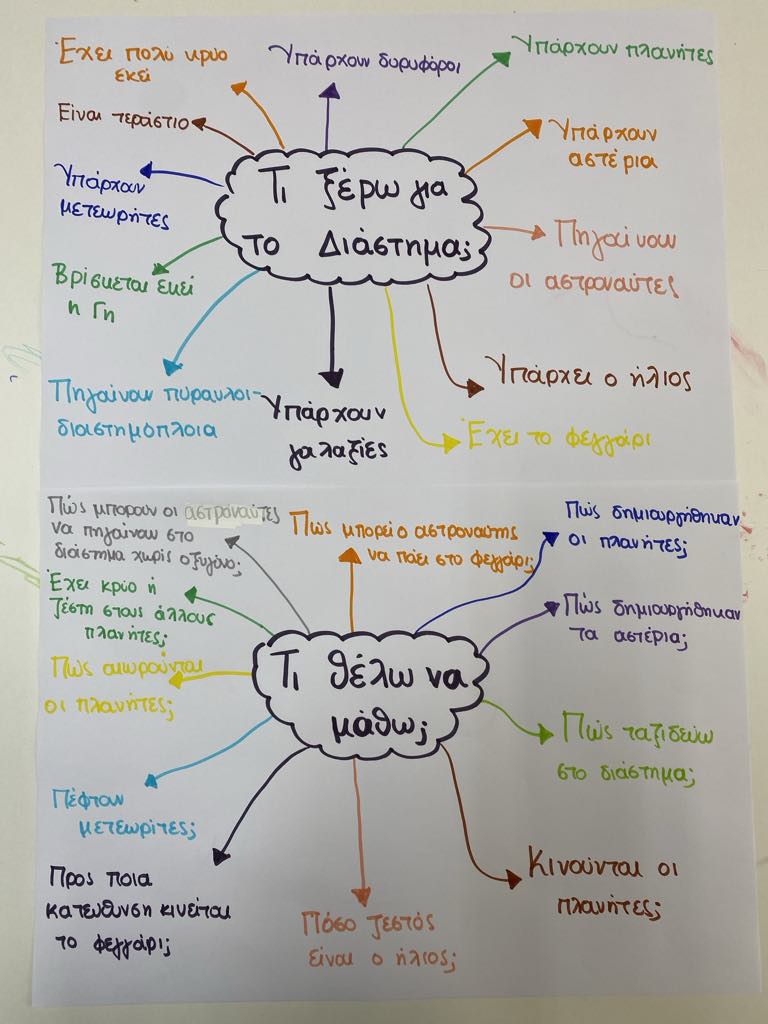 Έχει πολύ κρύο
εκεί
Υπάρχουν δορυφόροι
Υπάρχουν πλανήτες
Είναι τεράστιο
Υπάρχουν
αστέρια
Υπάρχουν
μετεωρήτες
Τι ξέρω για
το Διάστημα;
Πηγαίνουν
οι αστροναύτες
Βρίσκεται εκεί
η Γη
Υπάρχει ο ήλιος
Πηγαίνουν πύραυλοι-
διαστημόπλοια
Υπάρχουν
γαλαξίες
Έχει το φεγγάρι
Πώς μπορούν οι αστροναύτες
να πηγαίνουν στο
διάστημα χωρίς οξυγόνο;
Πώς μπορεί ο αστροναύτης
να πάει στο φεγγάρι;
Πώς δημιουργήθηκαν
οι πλανήτες;
Έχει κρύο ή
ζέστη στους άλλους
πλανήτες;
Πώς δημιουργήθηκαν
τα αστέρια;
Πώς αιωρούνται
οι πλανήτες;
Τι θέλω να
μάθω;
Πώς ταξιδεύω
στο διάστημα;
Πέφτουν
μετεωρίτες;
Προς ποια
κατεύθυνση κινείται
το φεγγάρι;
Πόσο ζεστός
είναι ο ήλιος;
Κινούνται οι
πλανήτες;